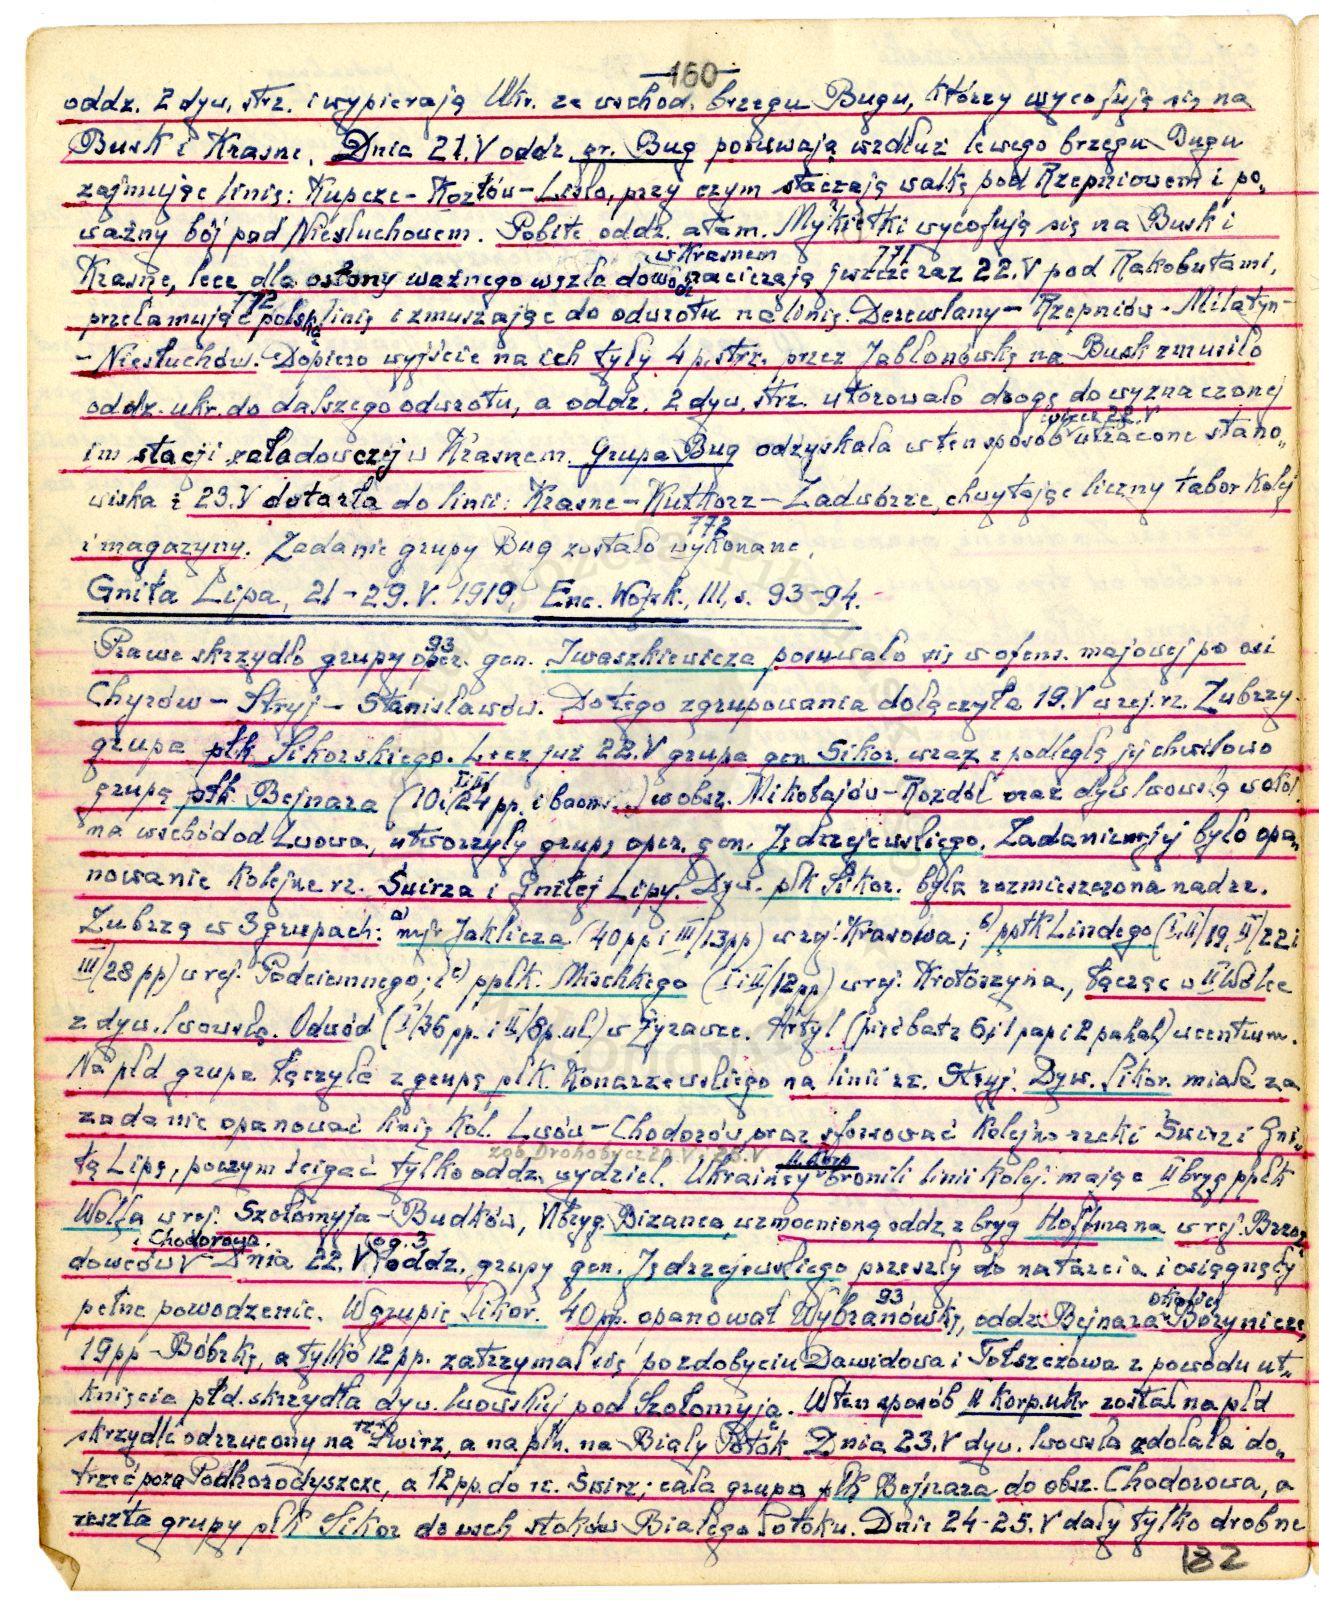 160
oddz. 2 dyw. strz. i wypierają Ukr. ze wschod. brzegu Bugu, którzy wycofują się na
Busk i Krasne. Dnia 21.V oddz. gr. Bug posuwają wzdłuż lewego brzegu Bugu
zajmując linię: Kupcze – Kozłów – Lisko, przy czym staczają walkę pod Rzepniowem i po„
ważny bój pod Niesłuchowem. Pobite oddz. atam. Mykietki wycofują się na Busk i
w Krasnem 771
Krasne, lecz dla osłony ważnego węzła dowoz. nacierają jeszcze raz 22.V pod Kakobutami,
772
przełamując polską linię i zmuszając do odwrotu na linię. Derewlany – Rzepniów - Milatyn –
– Niesłuchów. Dopiero wyjście na ich tyły 4 p. strz. przez Jabłonówkę na Busk zmusiło
oddz. ukr. do dalszego odwrotu, a oddz. 2 dyw. strz. utorowało drogę do wyznaczonej
wiecz 22.V
im stacji załadowczej w Krasnem. Grupa Bug odzyskała w ten sposób utracone stano„
wiska i 23.V dotarła do linii: Krasne – Kutkorz – Zadwórze, chwytając liczny tabor kolej
772
i magazyny. Zadanie grupy Bug zostało wykonane.
Gniła Lipa, 21 – 29.V. 1919, Enc. Wojsk., III, s. 93–94.
93
Prawe skrzydło grupy oper. gen. Iwaszkiewicza posuwało się w ofens. majowej po osi
Chyrów – Stryj – Stanisławów. Do tego zgrupowania dołączyła 19.V w rej. rz. Zubrzy
grupa płk Sikorskiego. Lecz już 22.V grupa gen Sikor. wraz z podległą jej chwilowo
grupą płk Bejnara (10 i 24 pp. i baon ...) w obsz. Mikołajów – Rozdół oraz dyw lwowską w okol.
na wschód od Lwowa, utworzyły grupę oper. gen. Jędrzejewskiego. Zadaniem jej było opa„
nowanie kolejne rz. Świrza i Gniłej Lipy. Dyw. płk Sikor. była rozmieszczona nad rz.
Zubrzą w 3 grupach: a) mjr Jaklicza (40 pp i III/13 pp) w rej. Krasowa; b) ppłk Lindego (I, II/19, II/22 i
III/28 pp) w rej. Podciemnego; i c) ppłk. Mischkego (I i II/12 pp) w rej. Krotoszyna, łącząc w Wólce
z dyw. lwowską. Odwód (I/36 pp. i II/8 p. uł) w Żyrawce. Artyl (pięć bat z 6 i 1 pap i 2 pahał) w centrum.
Na płd grupa łączyła z grupą płk. Konarzewskiego na linii rz. Stryj. Dyw. Sikor. miała za
zadanie opanować linię kol. Lwów – Chodorów, oraz sforsować kolejno rzeki Świrz i Gni„
zob. Drohobycz 20.V - 28.V II. Korp
łą Lipę, poczym ścigać tylko oddz. wydziel. Ukraińcy bronili linii kolej. mając II bryg ppłk
Wolfa w rej. Szołomyja – Budków, bryg Bizanca, wzmocnioną oddz z bryg Hoffmana w rej. Brzoz„
i Chodorowa. og. 3
dowców – Dnia 22.V oddz. grupy gen. Jędrzejewskiego przeszły do natarcia i osiągnęły
93 okolicę
pełne powodzenie. W grupie Sikor. 40 pp. opanował Wybranówkę, oddz Bejnara Borynicze,
19 pp – Bóbrkę, a tylko 12 pp. zatrzymał się po zdobyciu Dawidowa i Tołszczowa z powodu ut„
knięcia płd. skrzydła dyw. lwowskiej pod Szołomyją. W ten sposób II korp. ukr został na płd
rzekę
skrzydle odrzucony na Świrz, a na płn. na Biały Potok. Dnia 23.V dyw. lwowska zdołała do„
trzeć poza Podhorodyszcze, a 12 pp. do rz. Świrz; cała grupa płk Bejnara do obsz. Chodorowa, a
reszta grupy płk Sikor do wsch stoków Białego Potoku. Dnie 24–25.V dały tylko drobne
182